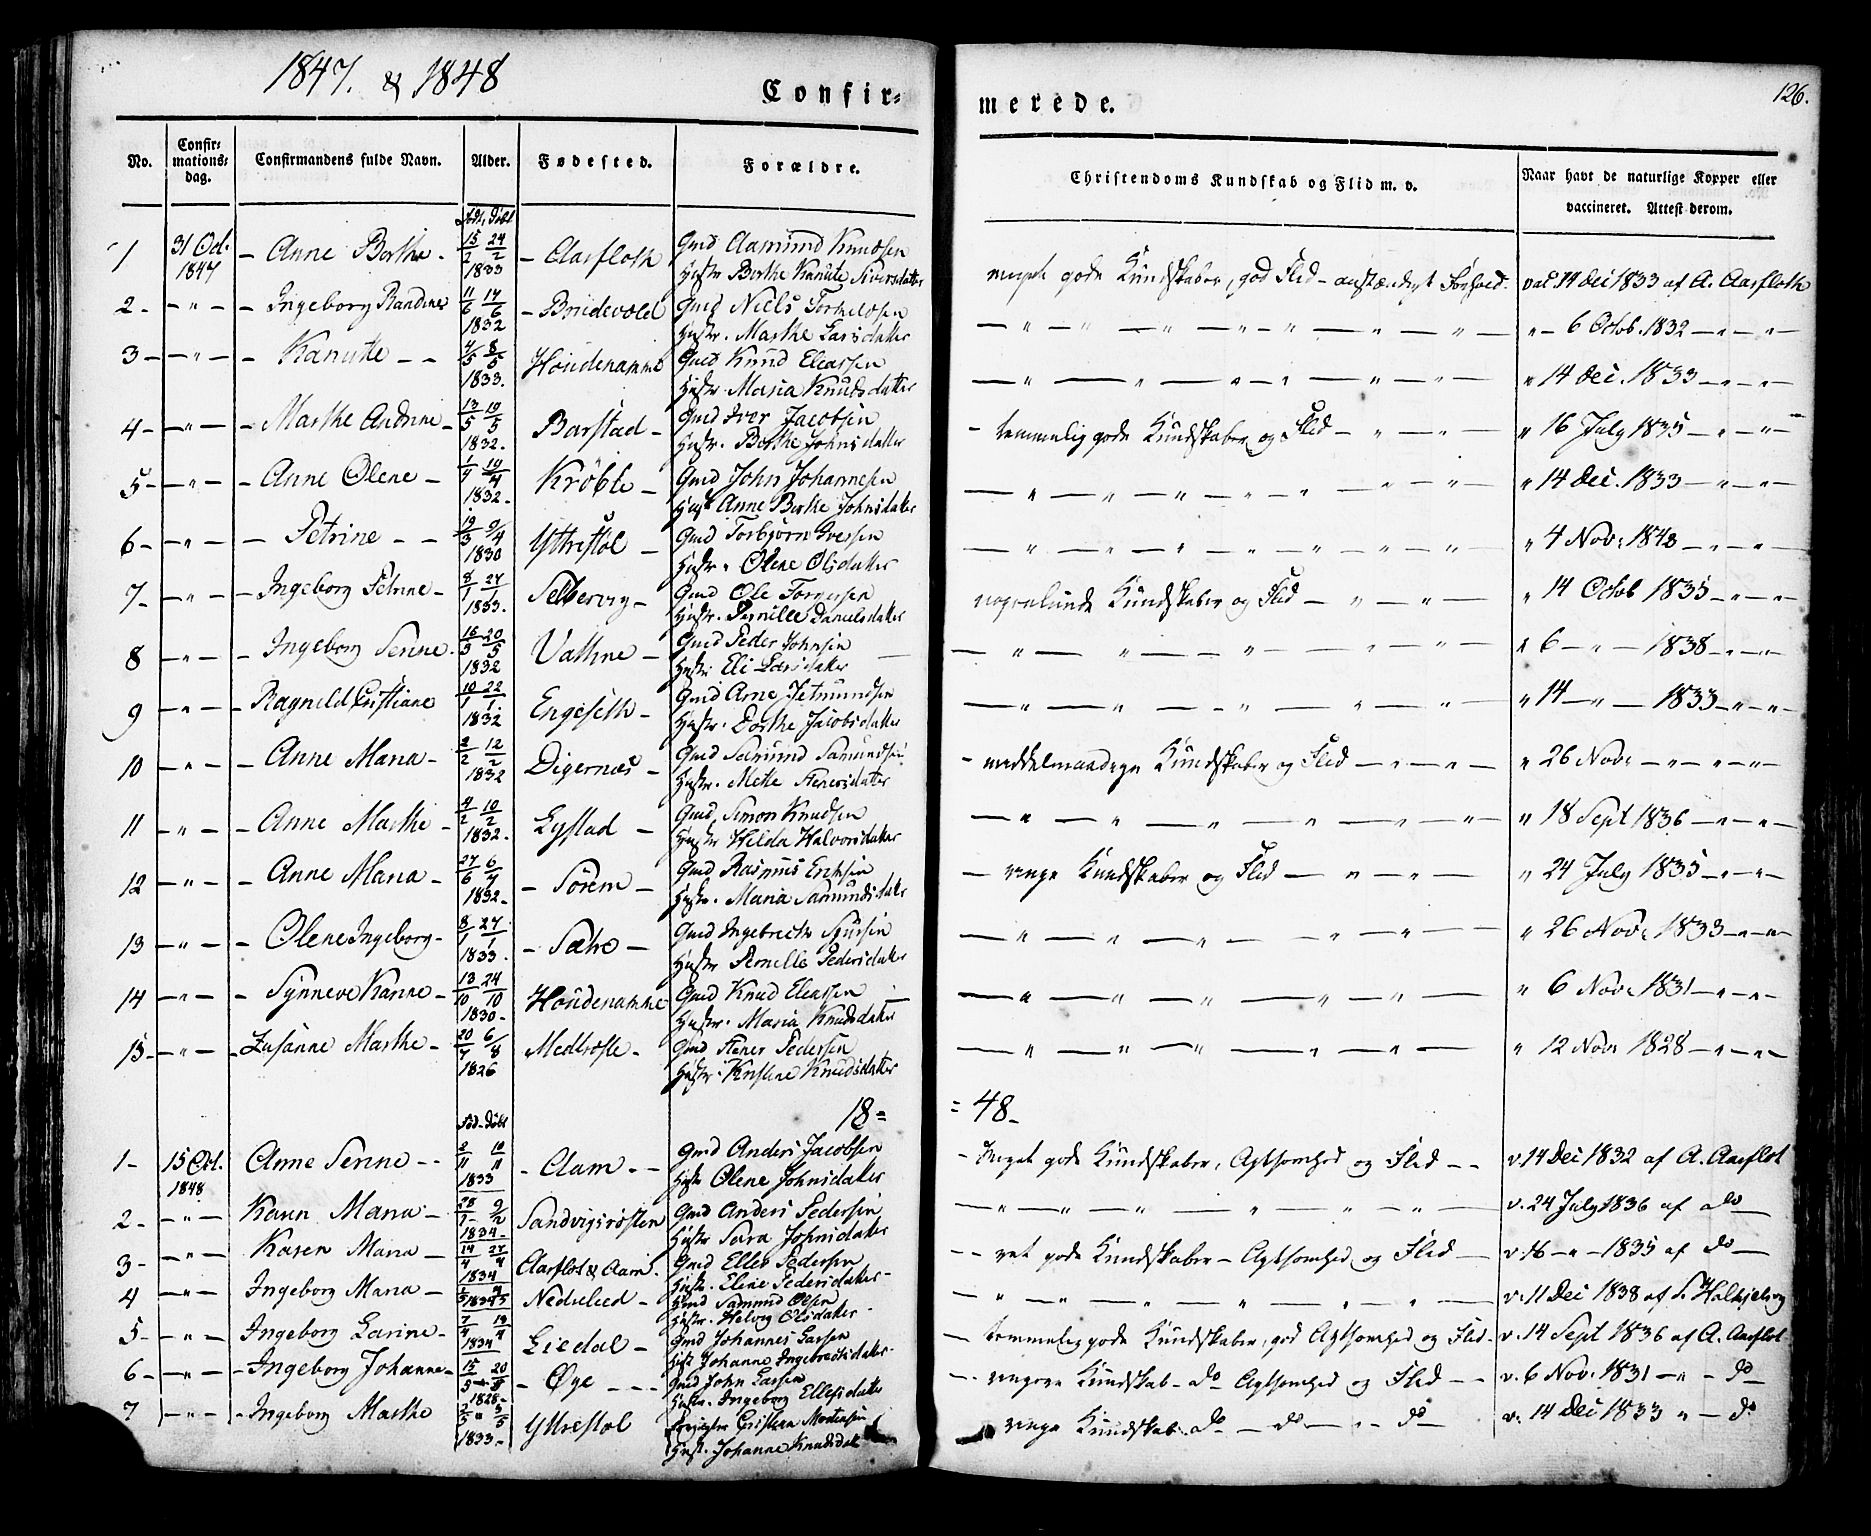 1847. & 1848
Confir=
merede.
126.
No.
Confir-
mations-
dag.
Confirmandens fulde Navn.
Alder.
Fødested.
Forældre.
Christendoms Kundskab og Flid m. v.
Naar havt de naturlige Kopper eller
vaccineret. Attest derom.
Født Døbt
1 31 Oct. 1847 - Anne Berthe - 15/2 24/2 1833 - Aarfloth Gmd Aamund Knudsen
Hustr Berthe Kanute Siversdatter
meget gode Kundskaber, god Flid - anstændigt Forhold - vac. 14 Dec 1833 af A. Aarfloth
2 - - " - - Ingeborg Randine 11/6 17/6 1832 - Brudevold Gmd Niels Torkeldsen
Hustr. Marthe Larsdatter
" - 6 Octob. 1832 - " - " -
3 - - " - - Kanutte - - 4/5 8/5 1833. Houdenamme Gmd Knud Eleassen
Hustr. Maria Knudsdatter
" 14 Dec. 1833 - " - " -
4 - - " - - Marthe Andrine - 13/5 19/5 1832. Barstad - Gmd Iver Jacobsen
Hustr. Berthe Johnsdatter
- temmelig gode Kundskaber og Flid - " - " - " 16 July 1835 - " - " -
5 - - " - - Anne Olene - 1832 - Krøble - Gmd John Johannesen
Hust Anne Berthe Johnsdatter
" 14 Dec. 1833 - " - " -
6 - - " - - Petrine - - 19/3 9/4 1830 Yttrestøl - Gmd Torbjørn Iversen
Hustr. Olene Olsdatter
" 4 Nov. 1843 - " - " -
7 - - " - - Ingeborg Petrine - 8/1 27/1 1833. Sætervig - Gmd Ole Torgersen
Hustr. Pernille Danielsdatter
nogenlunde Kundskaber og Flid - " - " - " 14 Octob 1835 - " - " -
8 - " - - Ingeborg Serine - 16/5 20/5 1832 Vathne - Gmd Peder Johnsen
Hustr. Eli Larsdatter
" 6 - " - 1838 - " - " -
9 - " - - Ragnild Cristiane 10/1 22/1 1832 Engeseth - Gmd Arne Jetmundsen
Hustr. Dorthe Jacobsdatter
" 14 - " - 1833 - " - " -
10 - " - - Anne Maria - 2/2 12/2 1832 Digernæs - Gmd Samund Samundsen
Hustr. Mette Stenersdatter
- meddelmaadige Kundskaber og Flid - " - " - " 26 Nov. - " - " - " -
11 - " - - Anne Marthe - 4/2 10/2 1832 - Lystad - Gmd Simon Knudsen
Hustr Helda Halvorsdatter
" 18 Sept 1836 - " - " -
12 - " - - Anne Maria - 27/6 1832 - - Sørem - Gmd Rasmus Ericksen
Hustr. Maria Samundsdatter
- ringe Kundskaber og Flid - " - " - " 24 July 1835 - " - " -
13 - " - - Olene Ingeborg - 8/1 27/1 1833. - Sætre - Gmd Ingebrecth Sjursen
Hustr Pernille Pedersdatter
" 26 Nov. 1833 - " - " -
14 - " - - Synneve Karine - 13/10 24/10 1830 - Houdenamme Gmd Knud Eleassen
Hustr. Maria Knudsdatter
" 6 Nov. 1831 - " - " -
15 - " - - Zusanne Marthe - 20/7 6/8 1826 Medtrøste - Gmd Stener Pedersen
Hustr. Kristine Knudsdatter
" 12 Novr 1828 - " - " -
18 = = 48 -
Fød - Døbt
1 - 15 Oct. 1848 Anne Serine - - 2/11 10/11 1833 - Aam - - Gmd Anders Jacobsen
Hustr Olene Johnsdatter
- Meget gode Kundskaber, Agtsomhed og Flid - - v. 14 Dec 1832 af A. Aarflot
2 - - " - Karen Maria - 28/1 9/2 1834 - Sandvigsrøsten Gmd Anders Pedersen
Hustr Sara Johnsdatter
v. 24 July 1836 af do -
3 - - " - Karen Maria - 14/4 27/4 1834 Aarflot & Aam. Gmd Elles Pedersen
Hustr. Elene Pedersdatter -
- - ret gode Kundskaber - Agtsomhed og Flid - v. 16 - " - 1835 af do -
4 - " - Ingeborg Maria - 1834 Nedrelied - Gmd Samund Olsen
Hustr. Helvig Olsdatter
v. 11 Dec 1838 af
5 - - " - Ingeborg Larine - 7/4 19/4 1834 Liedal - Gmd Johannes Larsen
Hust Johanne Ingebrectsdatter
- temmelig gode Kundskaber, god Agtsomhed og Flid - v. 14 Sept 1836 af A. Aarflot
6 - - " - - Ingeborg Johanne - 1828 - - Øye - - - Gmd John Larsen
Hustr. Ingeborg Ellesdatter
- ringere Kundskab - do Agtsomhed og Flid - - v. 6 Nov. 1831 - " - do
7 - " - - Ingeborg Marthe 1833 - Yttrestøl Cristen Mortensen
Hust. Johanne Knudsdat
ringe Kundskab do - do - " - do v. 14 Dec 1833 " - do